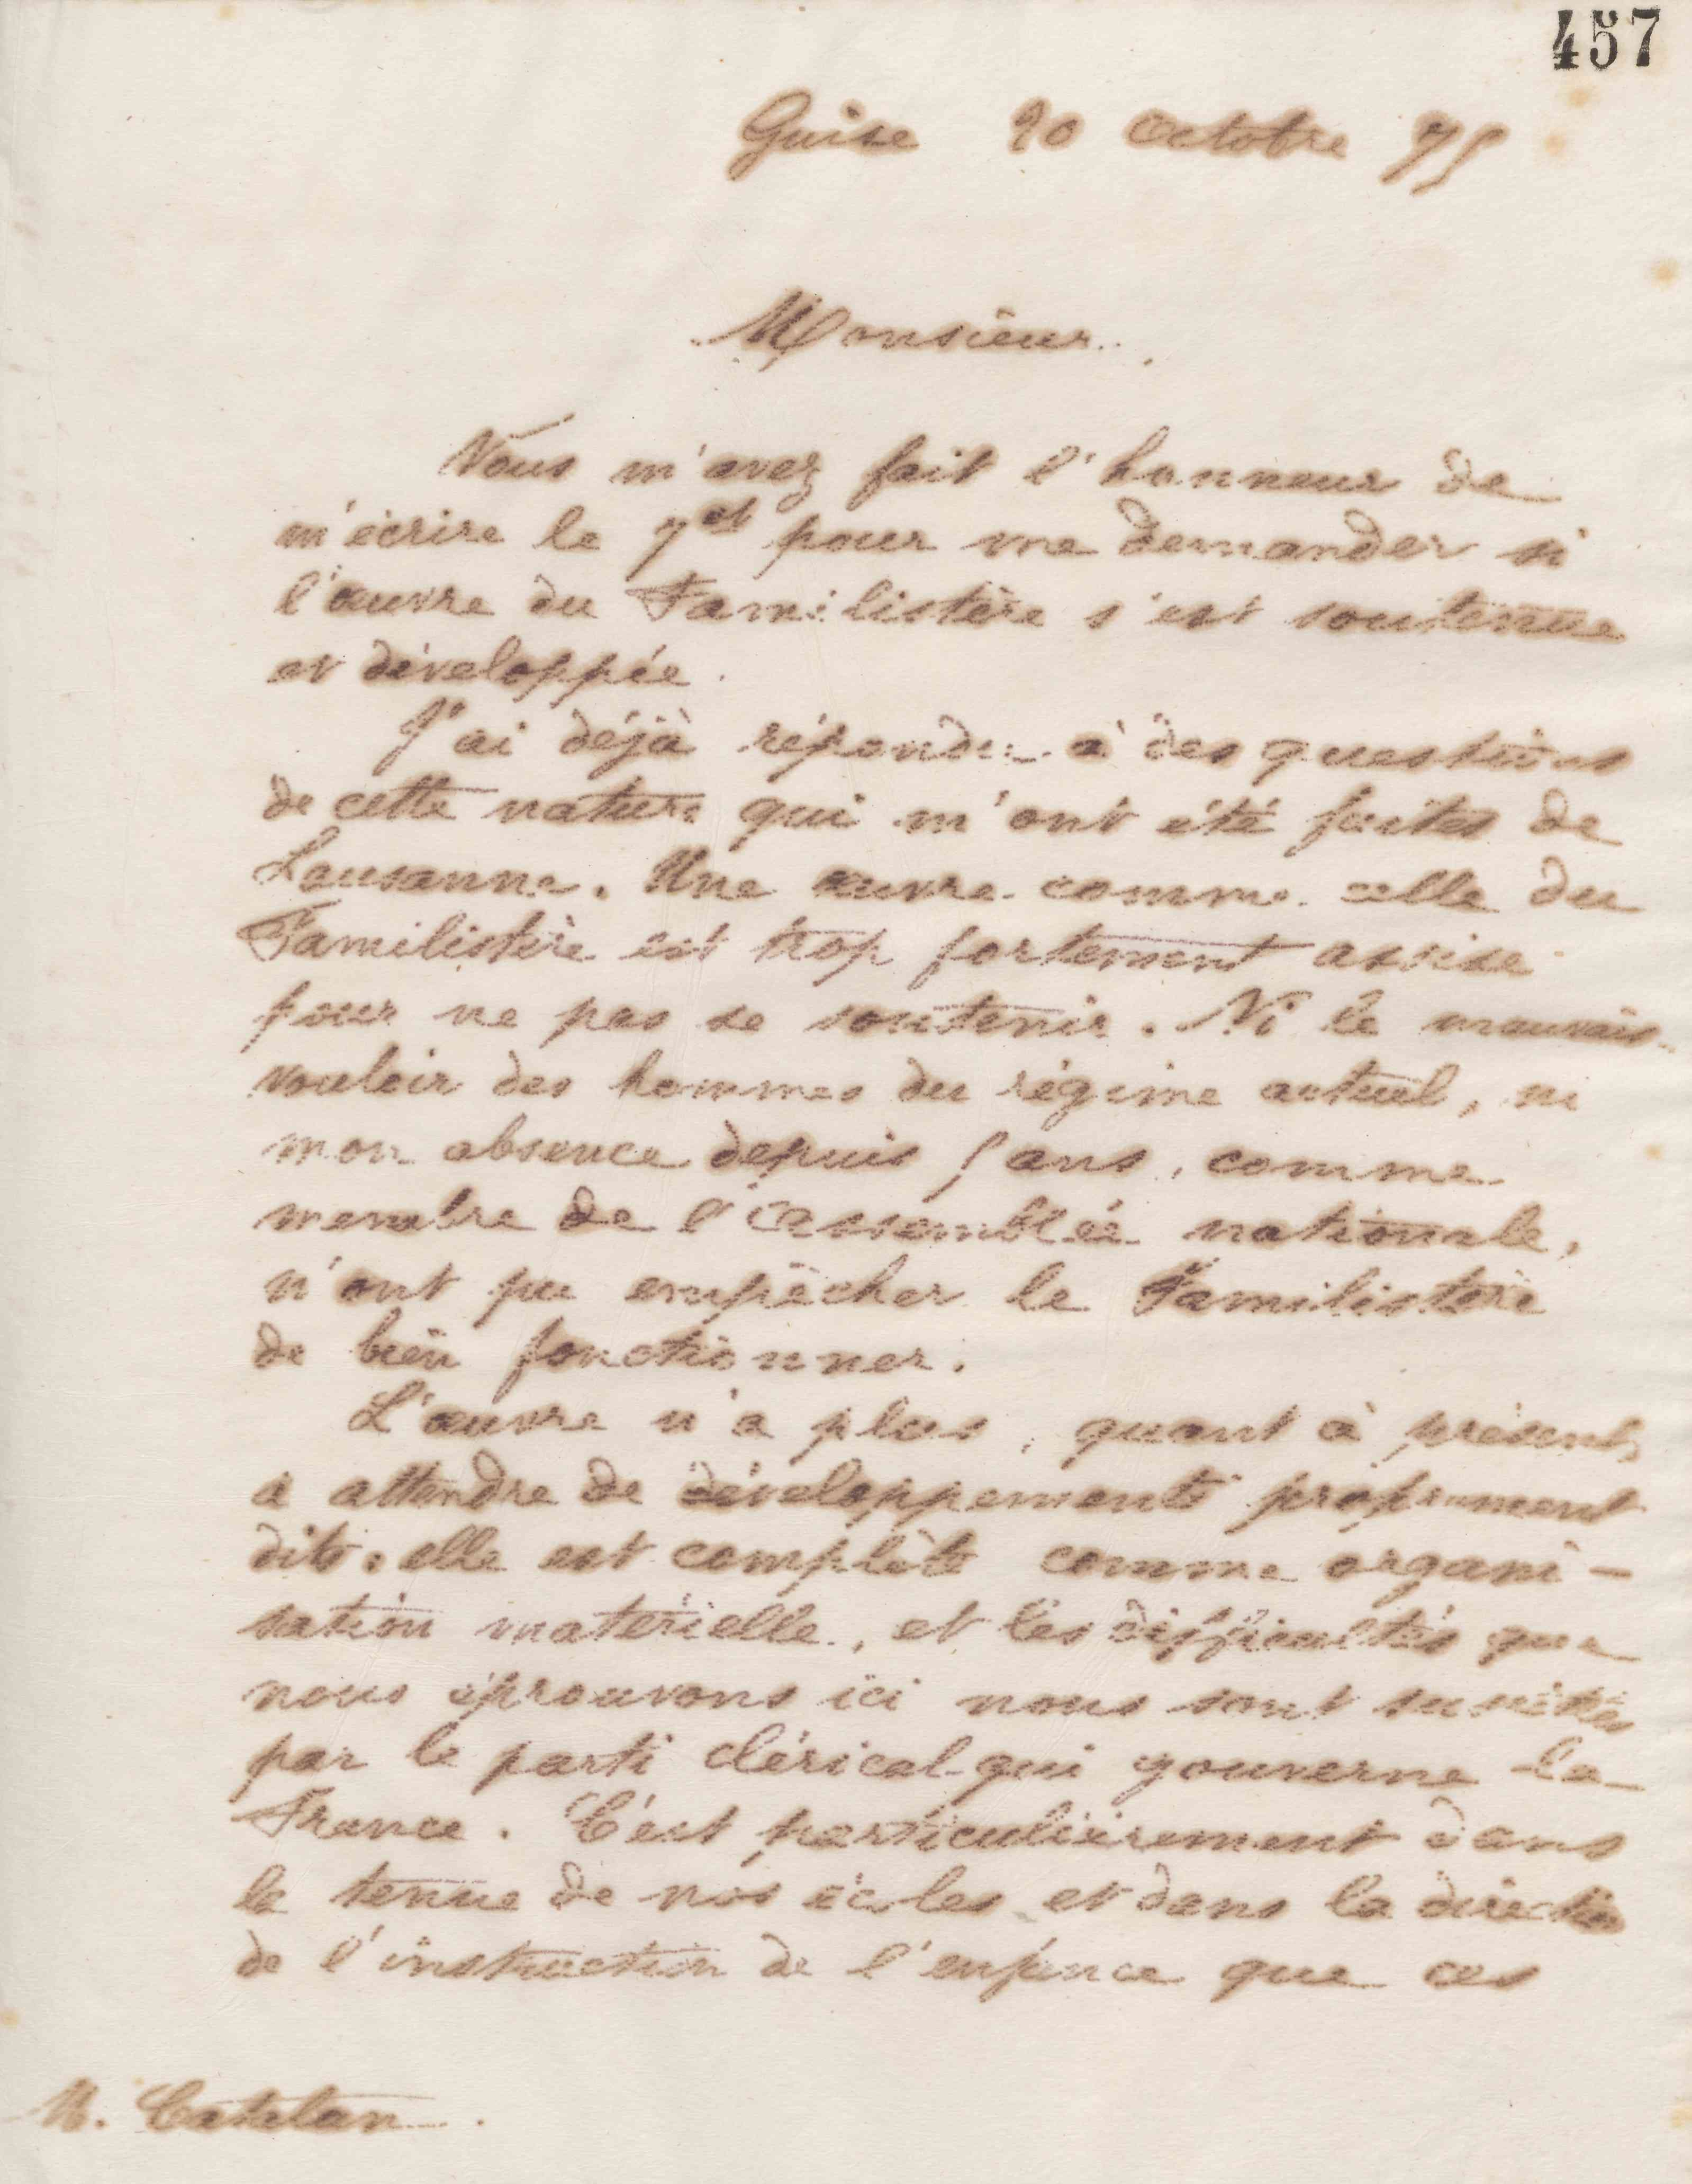 457
Guise 20 octobre 75
Monsieur.
Vous m'avez fait l'honneur de
m'écrire le 7 ct pour me demander si
l'œuvre du Familistère s'est soutenue
et développée.
J'ai déjà répondu à des questions
de cette nature qui m'ont été faites de
Lausanne. Une œuvre comme celle du
Familistère est trop fortement assise
pour ne pas se soutenir. Ni le mauvais
vouloir des hommes du régime actuel, ni
mon absence depuis 5 ans, comme
membre de l'assemblée nationale,
n'ont pu empêcher le Familistère
de bien fonctionner.
L'œuvre n'a plus, quant à présent,
à attendre de développements proprement
dits. elle est complète comme organi-
sation matérielle, et les difficultés que
nous éprouvons ici nous sont suscitées
par le parti clérical qui gouverne la
France. C'est particulièrement dans
la tenue de nos écoles et dans la direction
de l'instruction de l'enfance que ces
M. Catalan.